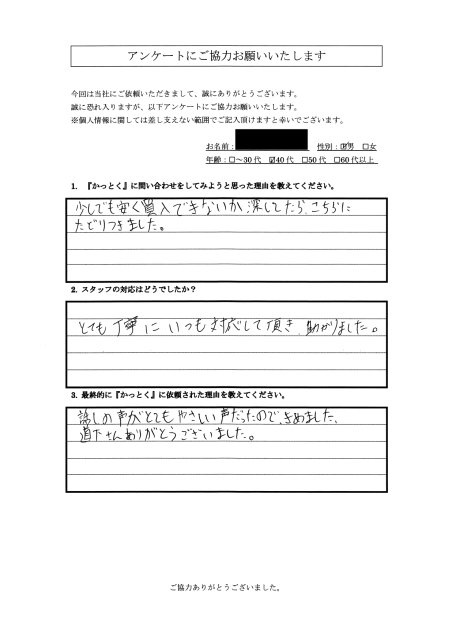 アンケートにご協力お願いいたします
今回は当社にご依頼いただきまして、誠にありがとうございます。
誠に恐れ入りますが、以下アンケートにご協力お願いいたします。
※個人情報に関しては差し支えない範囲でご記入頂けますと幸いでございます。
お名前： 性別：☑男 □女
年齢：□～30代 ☑40代 □50代 □60代以上
1. 『かっとく』に問い合わせをしてみようと思った理由を教えてください。
少しでも安く買入できないか探してたら、こちらに
たどりつきました。
2. スタッフの対応はどうでしたか？
とても丁寧にいつも対応して頂き、助かりました。
3. 最終的に『かっとく』に依頼された理由を教えてください。
話しの声がとてもやさしい声だったので、きめました、
道下さんありがとうございました。
ご協力ありがとうございました。